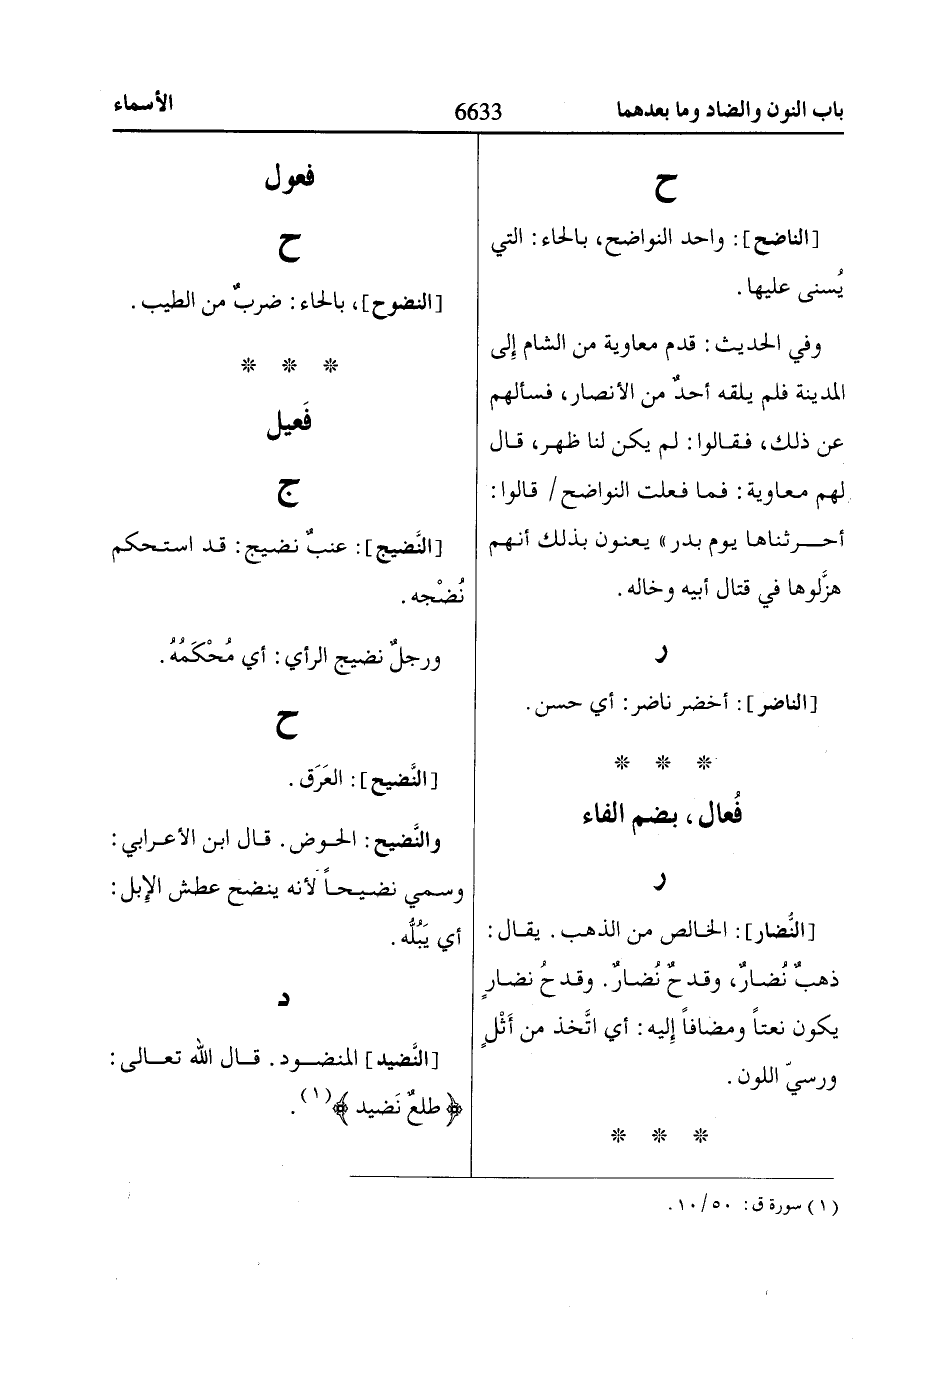 باب النون والضاد وما بعدهما 6633 الأسماء
ح
[الناضح]: واحد النواضح، بالحاء: التي
يُسنى عليها.
وفي الحديث: قدم معاوية من الشام إلى
المدينة فلم يلقه أحدٌ من الأنصار، فسألهم
عن ذلك، فقالوا: لم يكن لنا ظهر، قال
لهم معاوية: فما فعلت النواضح/ قالوا:
أحرثناها يوم بدر» يعنون بذلك أنهم
هزَّلوها في قتال أبيه وخاله.
ر
[الناضر]: أخضر ناضر: أي حسن.
* * *
فُعال، بضم الفاء
ر
[النُّضار]: الخالص من الذهب. يقال:
ذهبٌ نُضارٌ، وقدحٌ نُضارٌ. وقدحُ نضارٍ
يكون نعتاً ومضافاً إليه: أي اتَّخذ من أَثْلٍ
ورسيّ اللون.
* * *
فعول
ح
[النضوح]، بالحاء: ضربٌ من الطيب.
* * *
فَعيل
ج
[النَّضيج]: عنبٌ نضيج: قد استحكم
نُضْجه.
ورجلٌ نضيج الرأي: أي مُحْكَمُهُ.
ح
[النَّضيح]: العَرَق.
والنَّضيح: الحوض. قال ابن الأعرابي:
وسمي نضيحاً لأنه ينضح عطش الإبل:
أي يَبُلُّه.
د
[النَّضيد] المنضود. قال الله تعالى:
﴿طلعٌ نَضيد﴾(١).
(١) سورة ق: ٥٠/١٠.